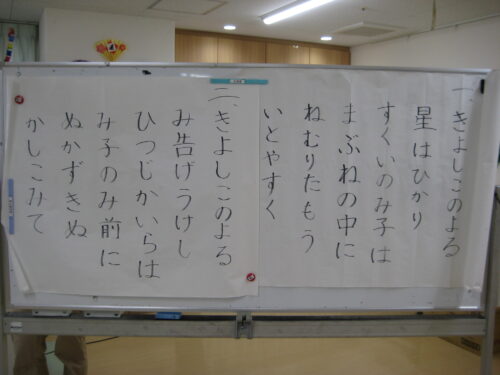 一、きよしこのよる
星はひかり
すくいのみ子は
まぶねの中に
ねむりたもう
いとやすく
二、きよしこのよる
み告げうけし
ひつじかいらは
み子のみ前に
ぬかずきぬ
かしこみて